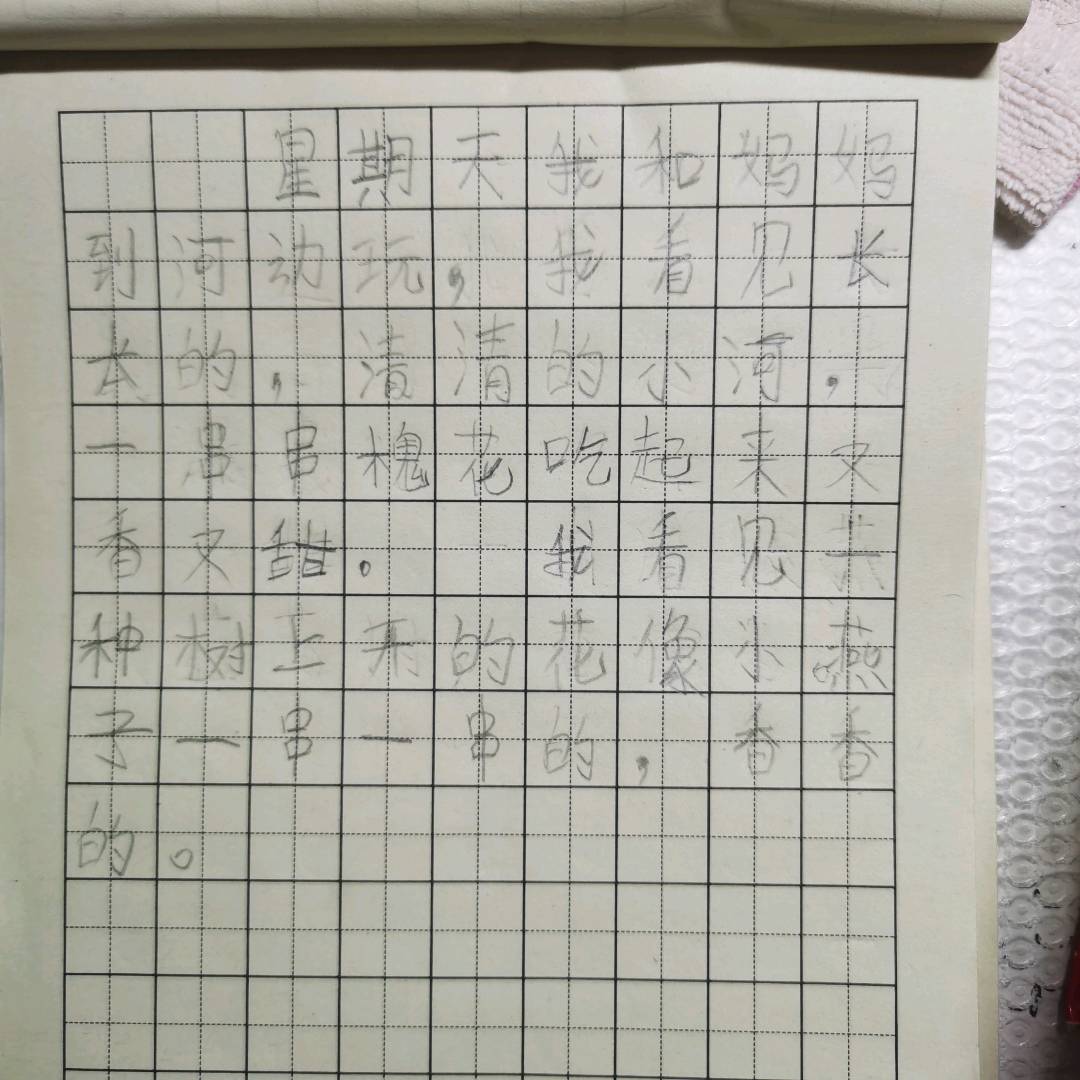 星期天我和妈妈
到河动玩，我看见长
长的，清清的小河，
一串串槐花吃起来又
香又甜。我看见
种树上开的花像小燕
子一串一串的，香香
的。